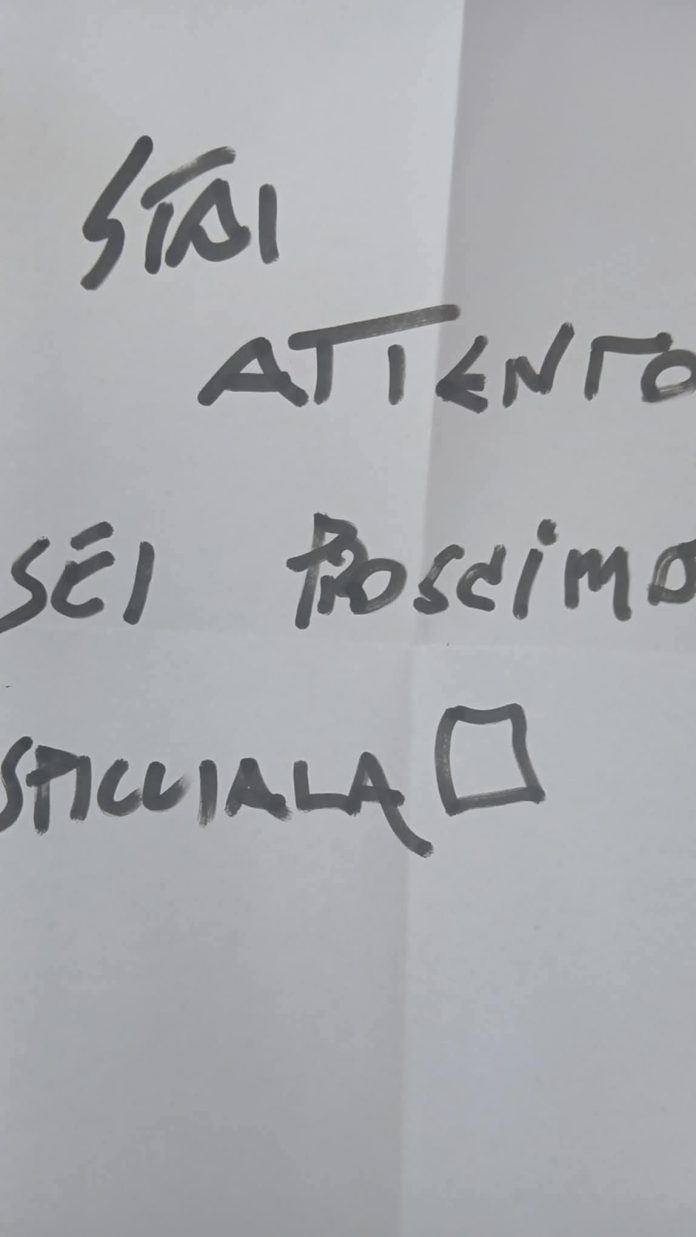 STAI
ATTENTO
SEI PROSCIMO